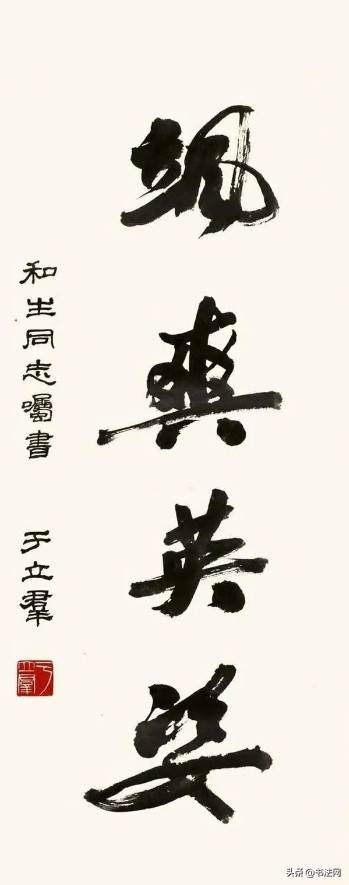 颯爽英姿
和生同志囑書 于立羣
于立羣
头条@书法网